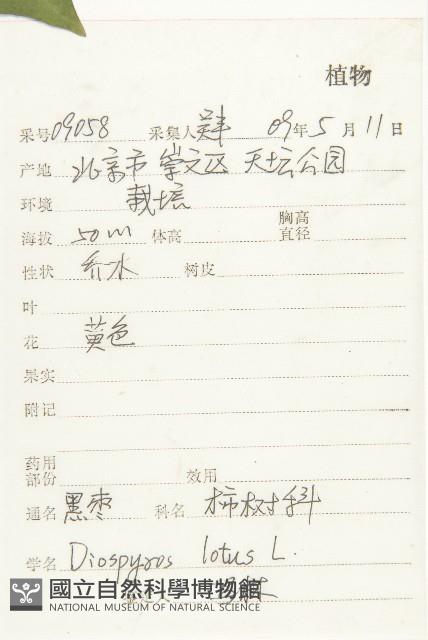 植物
采号 09058 采集人 09年5月11日
产地 北京市崇文区天坛公园
环境 栽培
海拔 50m 体高 胸高直径
性状 乔木 树皮
叶
花 黄色
果实
附记
药用部份 效用
通名 黑枣 科名 柿树科
学名 Diospyros lotus L.
國立自然科學博物館
NATIONAL MUSEUM OF NATURAL SCIENCE